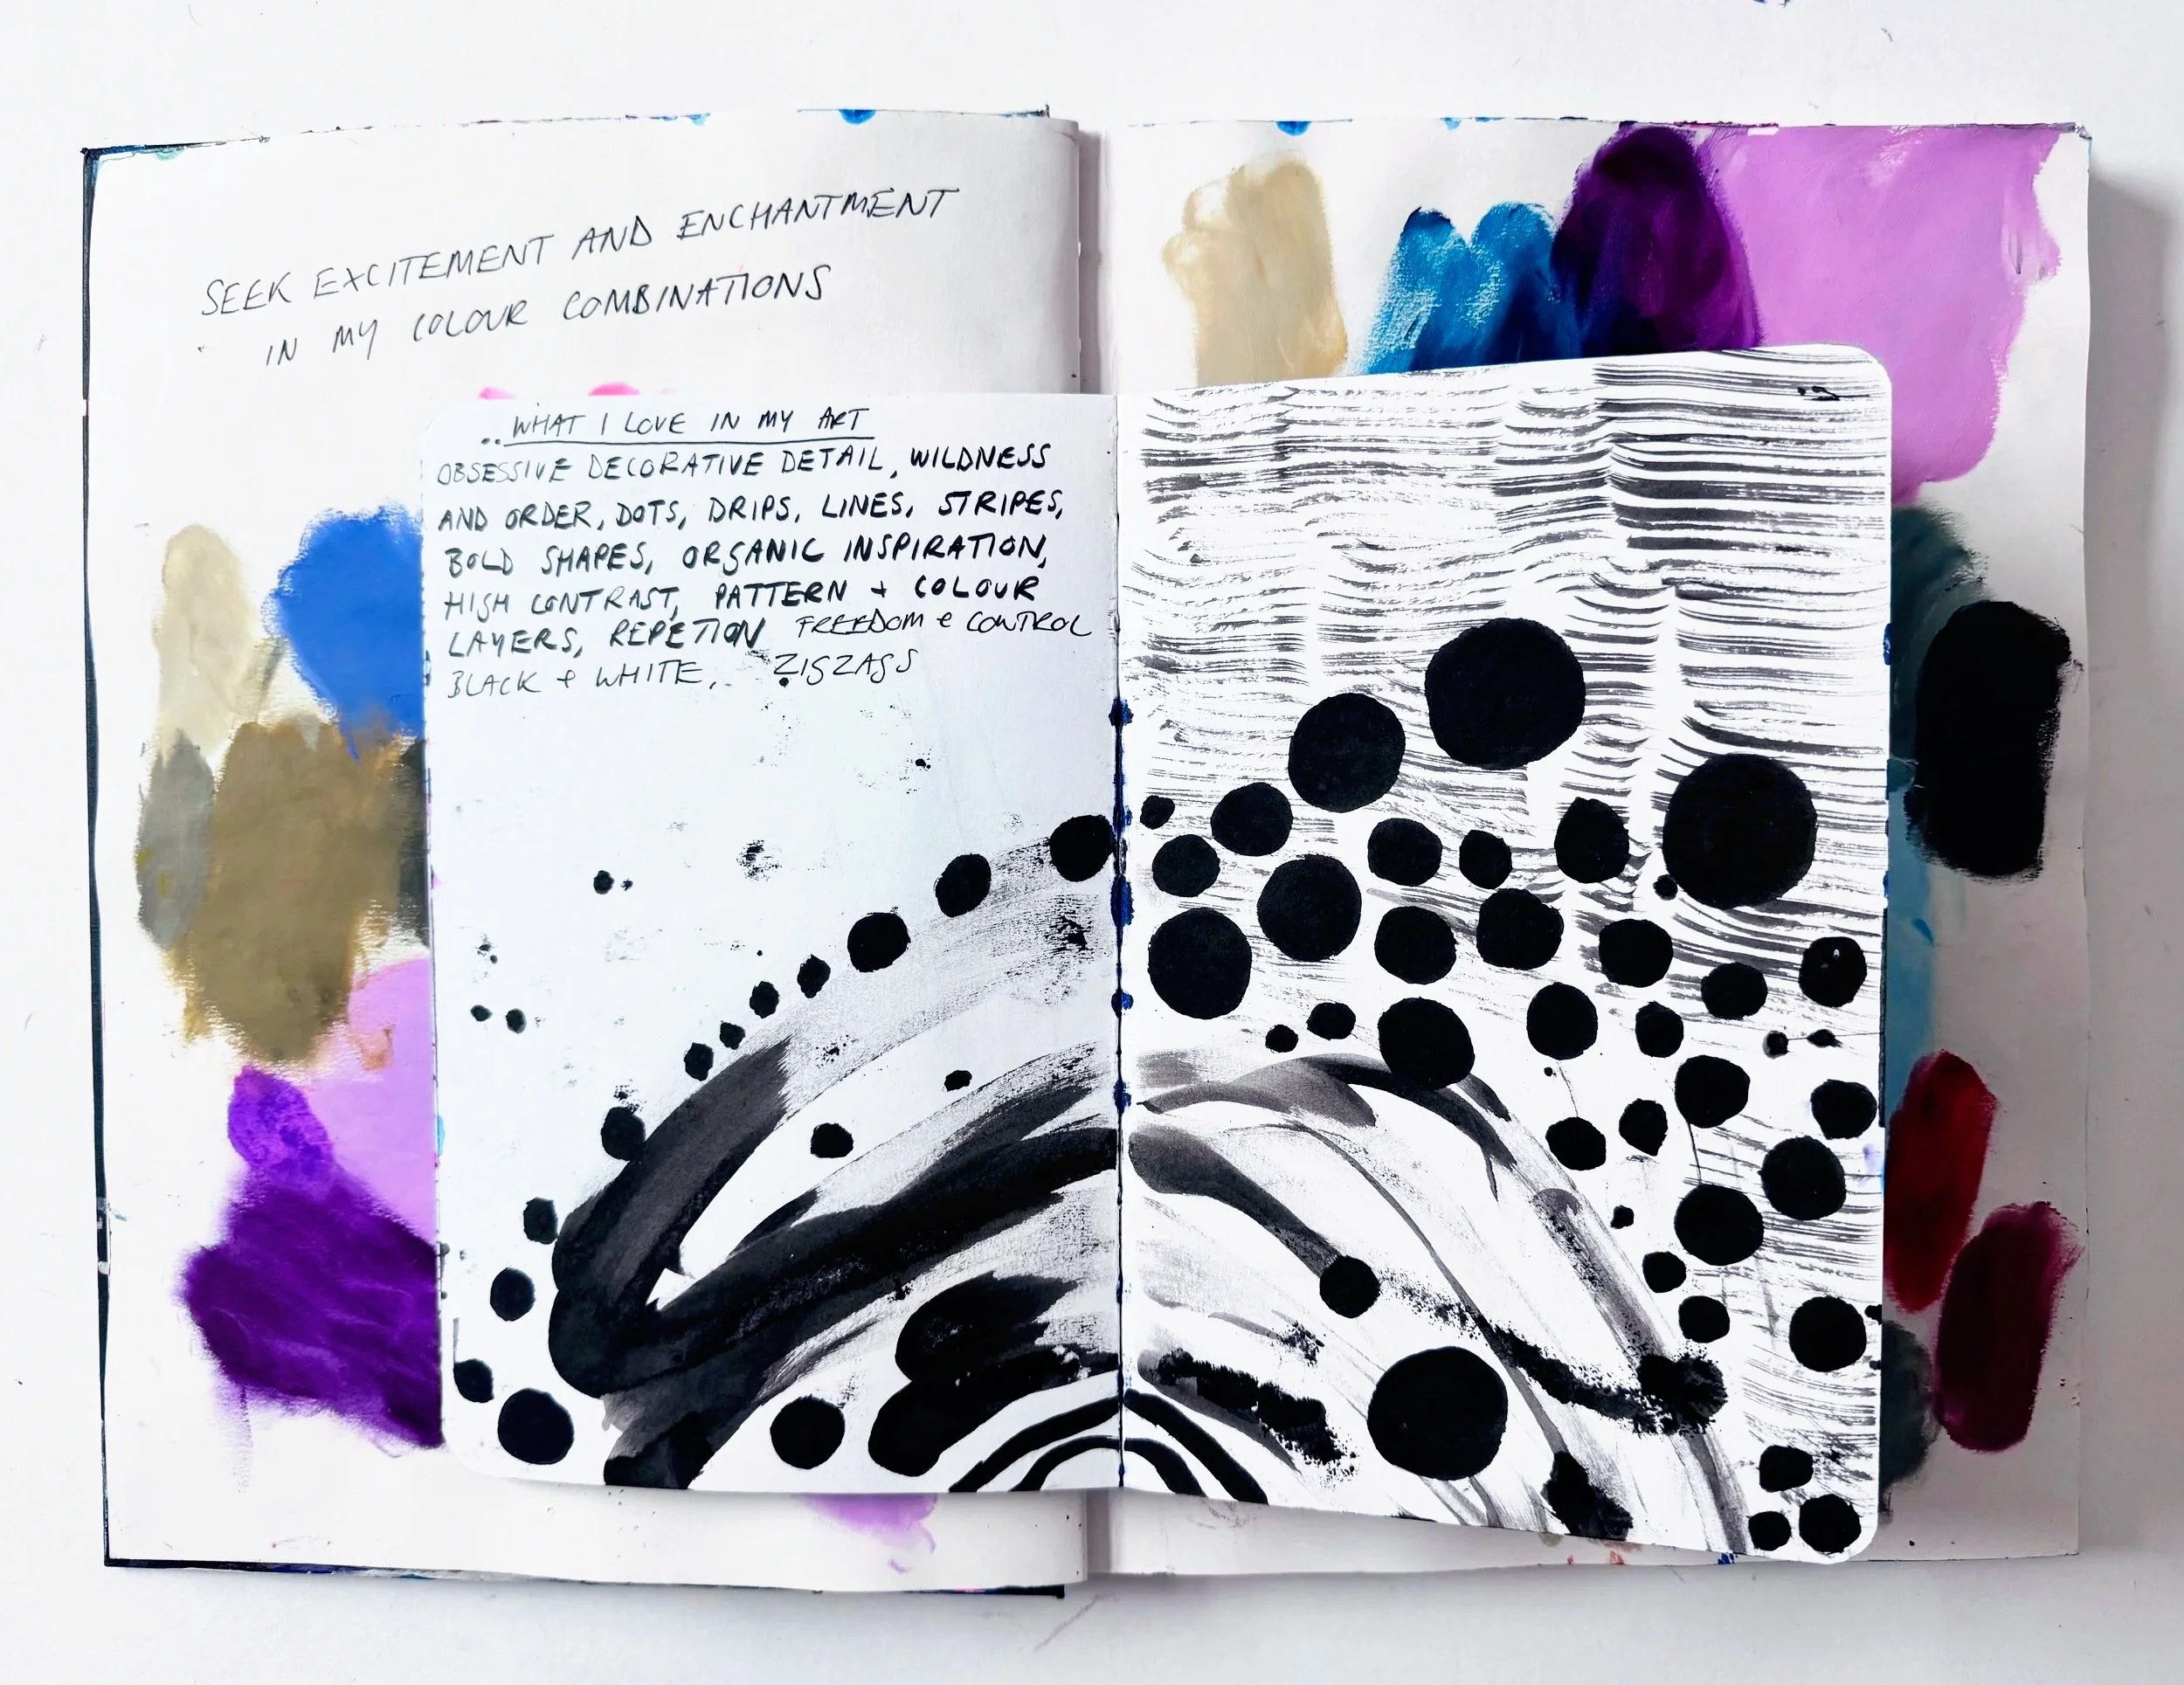 SEEK EXCITEMENT AND ENCHANTMENT
IN MY COLOUR COMBINATIONS
..WHAT I LOVE IN MY ART
OBSESSIVE DECORATIVE DETAIL, WILDNESS
AND ORDER, DOTS, DRIPS, LINES, STRIPES,
BOLD SHAPES, ORGANIC INSPIRATION,
HIGH CONTRAST, PATTERN + COLOUR
LAYERS, REPETION FREEDOM & CONTROL
BLACK & WHITE, ZIGZAGS